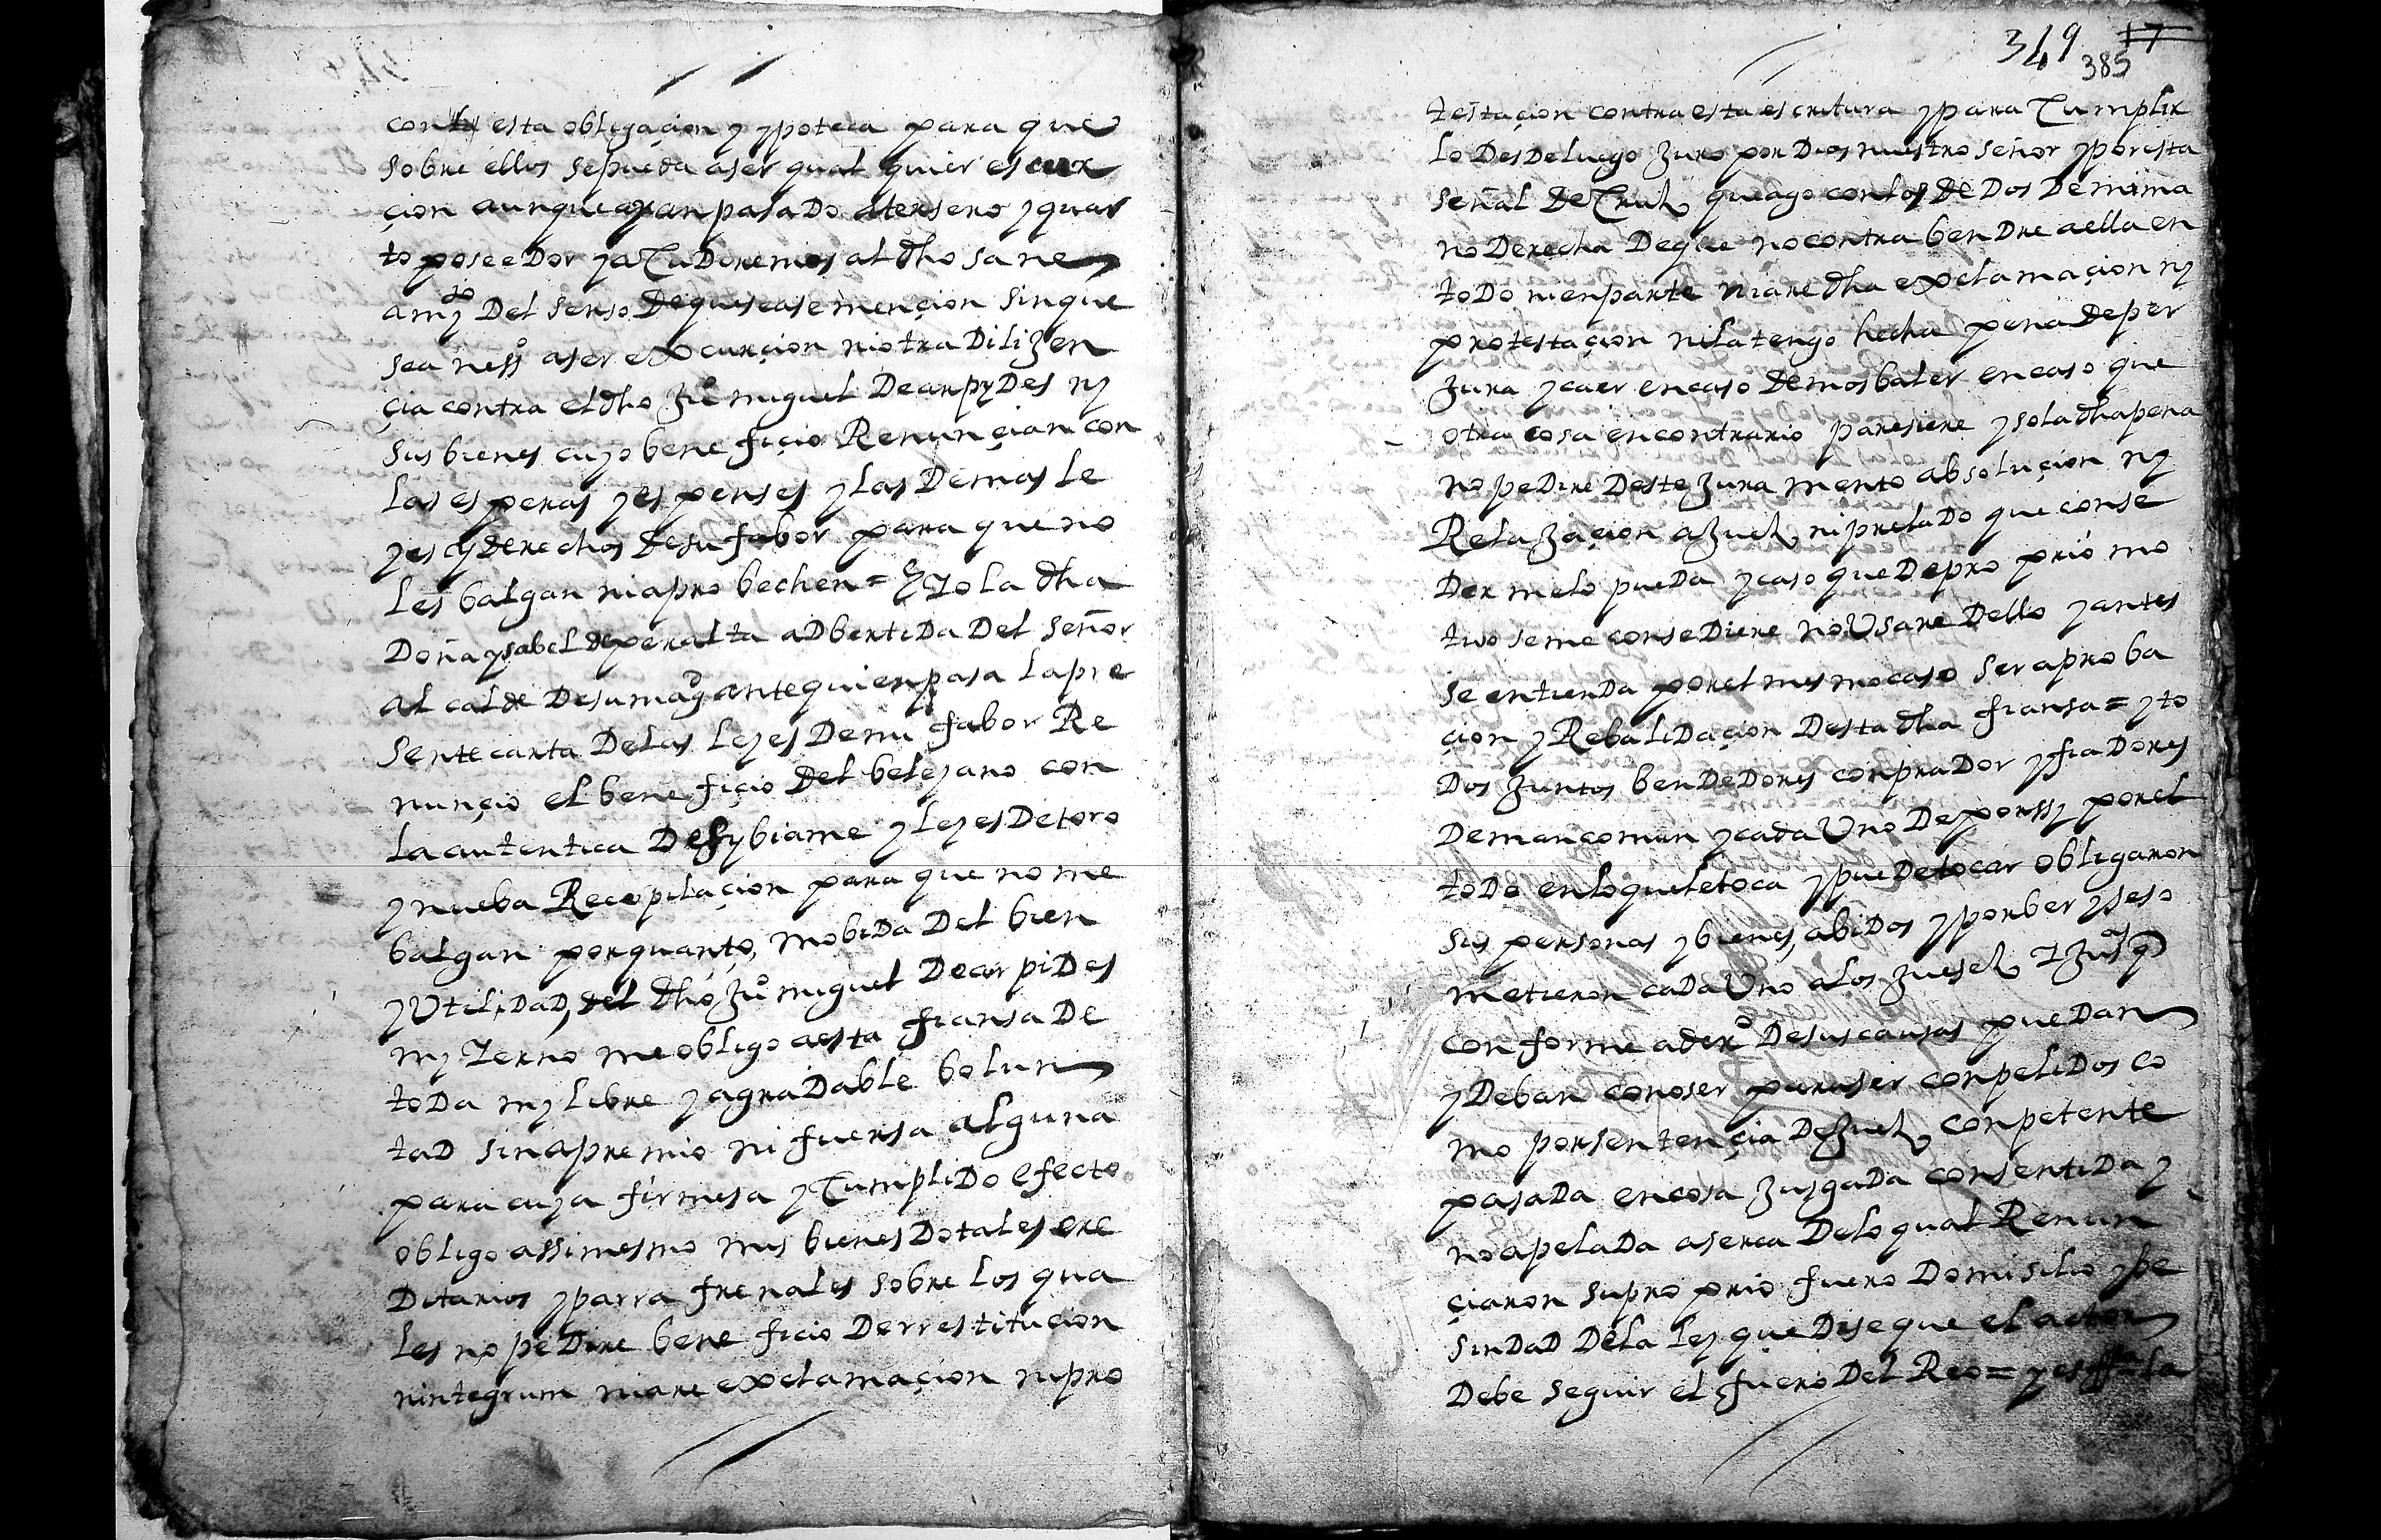 con esta obligaçion y ypoteca para que
sobre ellos sepueda aser qual quier escux
çion aunque ayan pasado atersero y quar
to poseedor y acudiremos al dho sane
amyº Del senso Dequeseasemençion sinque
sea nessº aser excurçion niotra Dilizen
çia contra eldho Juº miguel Decarpydes ny
sus bienes cuyo bene fiçio Renunçian con
las esperas y espenses y las Demas le
yes y derechos desu fabor para que no
les balgan niapro bechen = E yo la dha
Doña ysabel deperalta adbertida Del señor
al calde Desumagd antequienpasa lapre
sente carta Delas leyes Demi fabor Re
nunçio el bene fiçio Del beleyano con
la autentica Desybiame y leyes Detoro
y nueba Recopilaçion para que no me
balgan porquanto, mobida Del bien
y Utilidad, del dho Juº miguel Decarpides
my yerno me obligo aesta fiansa De
toda my libre y agradable bolun
tad sin apremio ni fuersa alguna
para cuya firmesa y cumplido efecto
obligo assimesmo mis bienes Dotales ere
Ditarios y parra frenales sobre los qua
les no pedire bene ficio Derrestitucion
nintegrum niare exclamaçion nipro
349 17
385
testaçion contra esta escritura y para cumplir
lo Desdeluego Juro por Dios nuestro señor y poresta
señal de cruz que ago con los de Dos De mi ma
no Derecha Deque no contra bendre aella en
todo nienparte niare dha exclamaçion ny
protestaçion nila tengo hecha pena deper
jura y caer encaso demosbaler encaso que
otra cosa encontrario paresiere y sola dhapena
no pedire Deste Jura mento absoluçion ny
Relazaçion aJuez, niprelado que conse
Der melo pueda y caso que Depro prio mo
tivo seme consediere no Usare Dello y antes
se entienda porel mesmocaso ser aproba
çion y Rebalidaçion Desta dha fiansa = y to
Dos Juntos bendedores conprador y fiadores
Demancomun y cada Uno Deporssy porel
todo enloqueletoca y puedetocar obligaron
sus personas y bienes, abidos y porber y seso
metieron cada Uno alos Juesez y Jusas q
conforme aderº Desus causas puedan
y Deban conoser paraser conpelidos co
mo porsentençia DeJuez, conpetente
pasada encosa Jusgada consentida y
no apelada aserca Delo qual Renun
çiaron supro prio fuero Domisilio y be
sindad Dela ley que Diseque el actor
Debe seguir el fuero Del Reo = y esta la